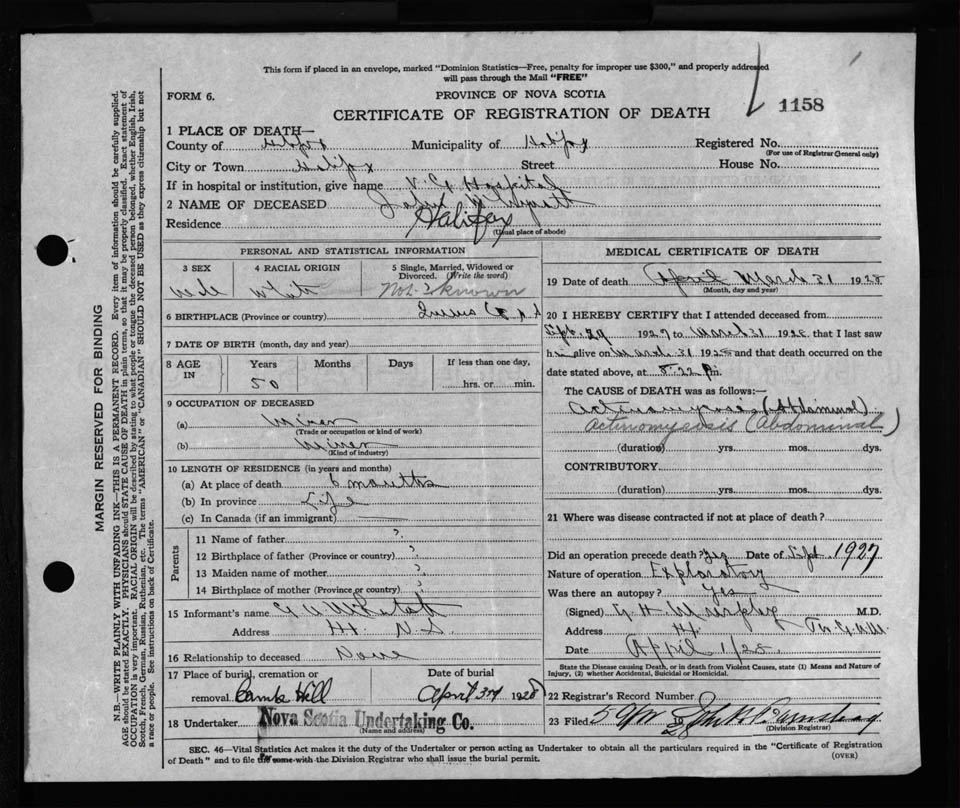 This form if placed in an envelope, marked "Dominion Statistics—Free, penalty for improper use $300," and properly addressed
will pass through the Mail "FREE"
FORM 6.
PROVINCE OF NOVA SCOTIA
CERTIFICATE OF REGISTRATION OF DEATH
1158
1 PLACE OF DEATH—
County of Municipality of Halifax Registered No.
(For use of Registrar General only)
City or Town Halifax Street House No.
If in hospital or institution, give name V. G. Hospital
2 NAME OF DECEASED John
Residence Halifax
(Usual place of abode)
PERSONAL AND STATISTICAL INFORMATION
3 SEX 4 RACIAL ORIGIN 5 Single, Married, Widowed or Divorced. (Write the word)
white Not known
6 BIRTHPLACE (Province or country)
7 DATE OF BIRTH (month, day and year)
8 AGE IN Years Months Days If less than one day,
50 hrs. or min.
9 OCCUPATION OF DECEASED
(a) Miner
(Trade or occupation or kind of work)
(b) Miner
(Kind of industry)
10 LENGTH OF RESIDENCE (in years and months)
(a) At place of death 6 months
(b) In province Life
(c) In Canada (if an immigrant)
Parents
11 Name of father ?
12 Birthplace of father (Province or country) ?
13 Maiden name of mother ?
14 Birthplace of mother (Province or country) ?
15 Informant's name
Address Hx. N.S.
16 Relationship to deceased None
17 Place of burial, cremation or Date of burial
removal Camp Hill April 3rd 1928
18 Undertaker Nova Scotia Undertaking Co.
(Name and address)
MEDICAL CERTIFICATE OF DEATH
19 Date of death April March 31 1928
(Month, day and year)
20 I HEREBY CERTIFY that I attended deceased from
Sept. 29 1927 to March 31 1928, that I last saw
him alive on March 31 1928 and that death occurred on the
date stated above, at 8.22 p m.
The CAUSE OF DEATH was as follows:—
Actinomycosis (Abdominal)
Actinomycosis (Abdominal)
(duration) yrs. mos. dys.
CONTRIBUTORY.
(duration) yrs. mos. dys.
21 Where was disease contracted if not at place of death?
Did an operation precede death? Yes Date of Sept. 1927
Nature of operation Exploratory
Was there an autopsy? Yes
(Signed) G H Murphy M.D.
Address Hx.
Date April 1/28
State the Disease causing Death, or in death from Violent Causes, state (1) Means and Nature of
Injury, (2) whether Accidental, Suicidal or Homicidal.
22 Registrar's Record Number
23 Filed 5 19
(Division Registrar)
SEC. 46—Vital Statistics Act makes it the duty of the Undertaker or person acting as Undertaker to obtain all the particulars required in the "Certificate of Registration
of Death" and to file the same with the Division Registrar who shall issue the burial permit.
(OVER)
MARGIN RESERVED FOR BINDING
N.B.—WRITE PLAINLY WITH UNFADING INK—THIS IS A PERMANENT RECORD. Every item of information should be carefully supplied.
AGE should be stated EXACTLY. PHYSICIANS should STATE CAUSE OF DEATH in plain terms, so that it may be properly classified. Exact statement of
OCCUPATION is very important. RACIAL ORIGIN will be described by stating to what people or tongue the deceased person belonged, whether English, Irish,
Scotch, French, German, Russian, Ruthenian, etc. The terms "AMERICAN" or "CANADIAN" SHOULD NOT BE USED as they express citizenship but not
a race or people. See instructions on back of Certificate.